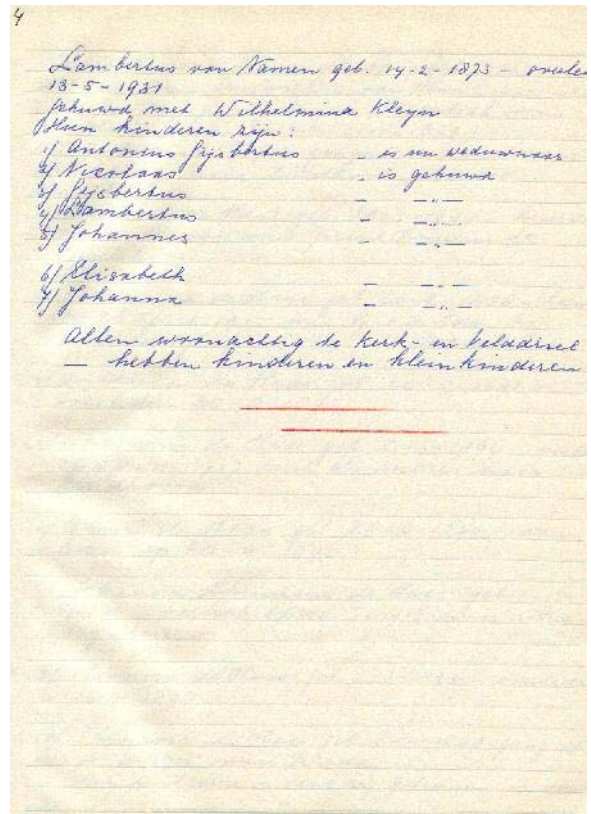 4
Lambertus van Namen geb. 14-2-1873 - overle
13-5-1931
Gehuwd met Wilhelmina Kleyn
Hun kinderen zijn:
1/ Antonius Gijsbertus - is nu weduwnaar
2/ Nicolaas - is gehuwd
3/ Gijsbertus - -„-
4/ Lambertus - -„-
5/ Johannes - -„-
6/ Elisabeth - -„-
7/ Johanna - -„-
Allen woonachtig te Kerk- en Velddriel
— hebben kinderen en kleinkinderen